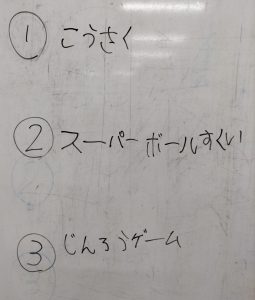 ① こうさく
② スーパーボールすくい
③ じんろうゲーム